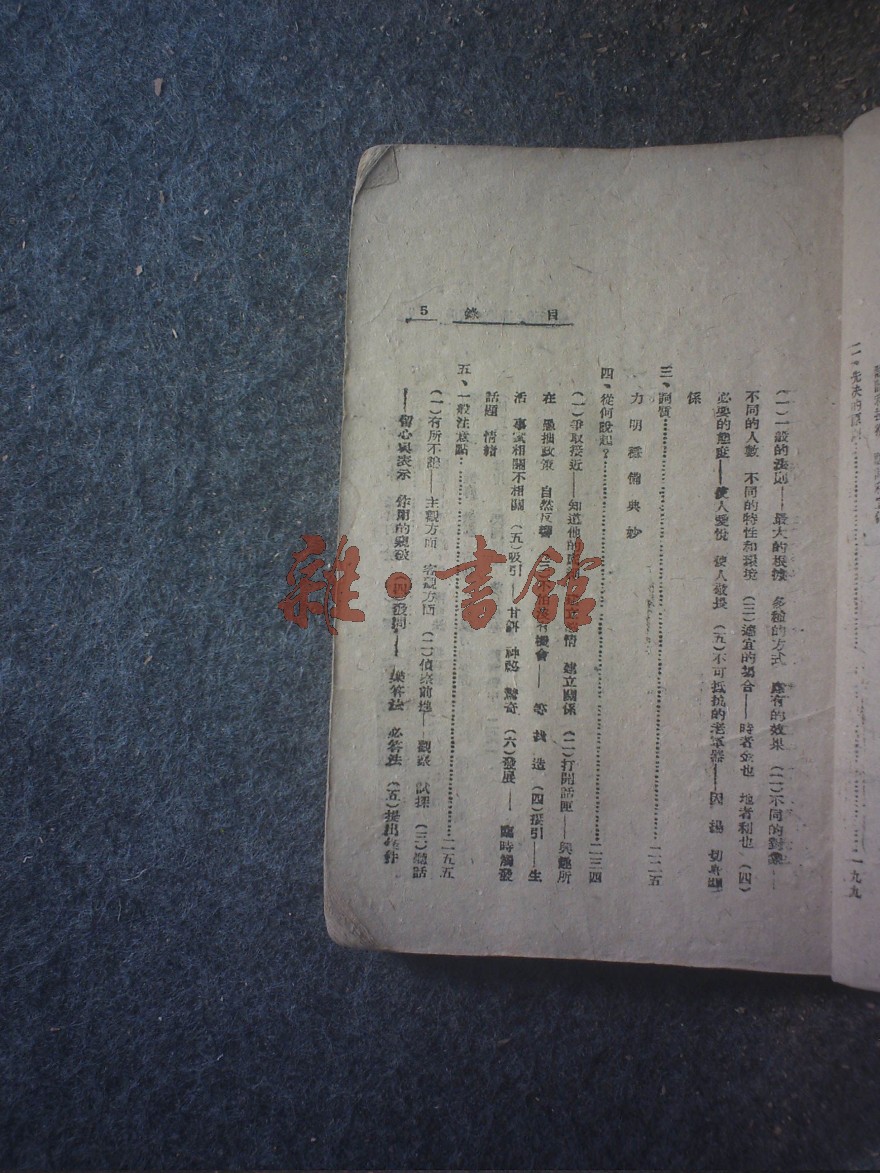 目錄 5
二、先決的原則……一九九
(一)一般的法則——最大的根據 多種的方式 應有的效果 (二)不同的對象——
不同的人數 不同的特性和環境 (三)適宜的場合——時者金也 地者利也 (四)
必要的態度——使人愛悅 使人敬畏 (五)不可抵抗的老軍器——因 湯
係
三、詞質……二二五
力 明 雅 備 典 妙
四、從何說起?……二三四
(一)爭取接近——知道他的 建立感情 建立關係 (二)打開話匣——興趣所
在 愚拙政策 自然反響 (三) 有機會—— 等 找 造 (四)援引——生
活 事實相關不相關 (五)吸引——甘餌 神秘 驚奇 (六)發展—— 臨時觸發
話題 情緒
五、一般注意點……二五五
(一)有所不談——主觀方面 客觀方面 (二)偵察前地——觀察 試探 (三)聽話
——留心與表示 作用的 (四)發問—— 答法 必答法 (五)提出條件
雜·書館